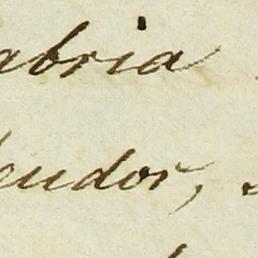 abria
eudor,